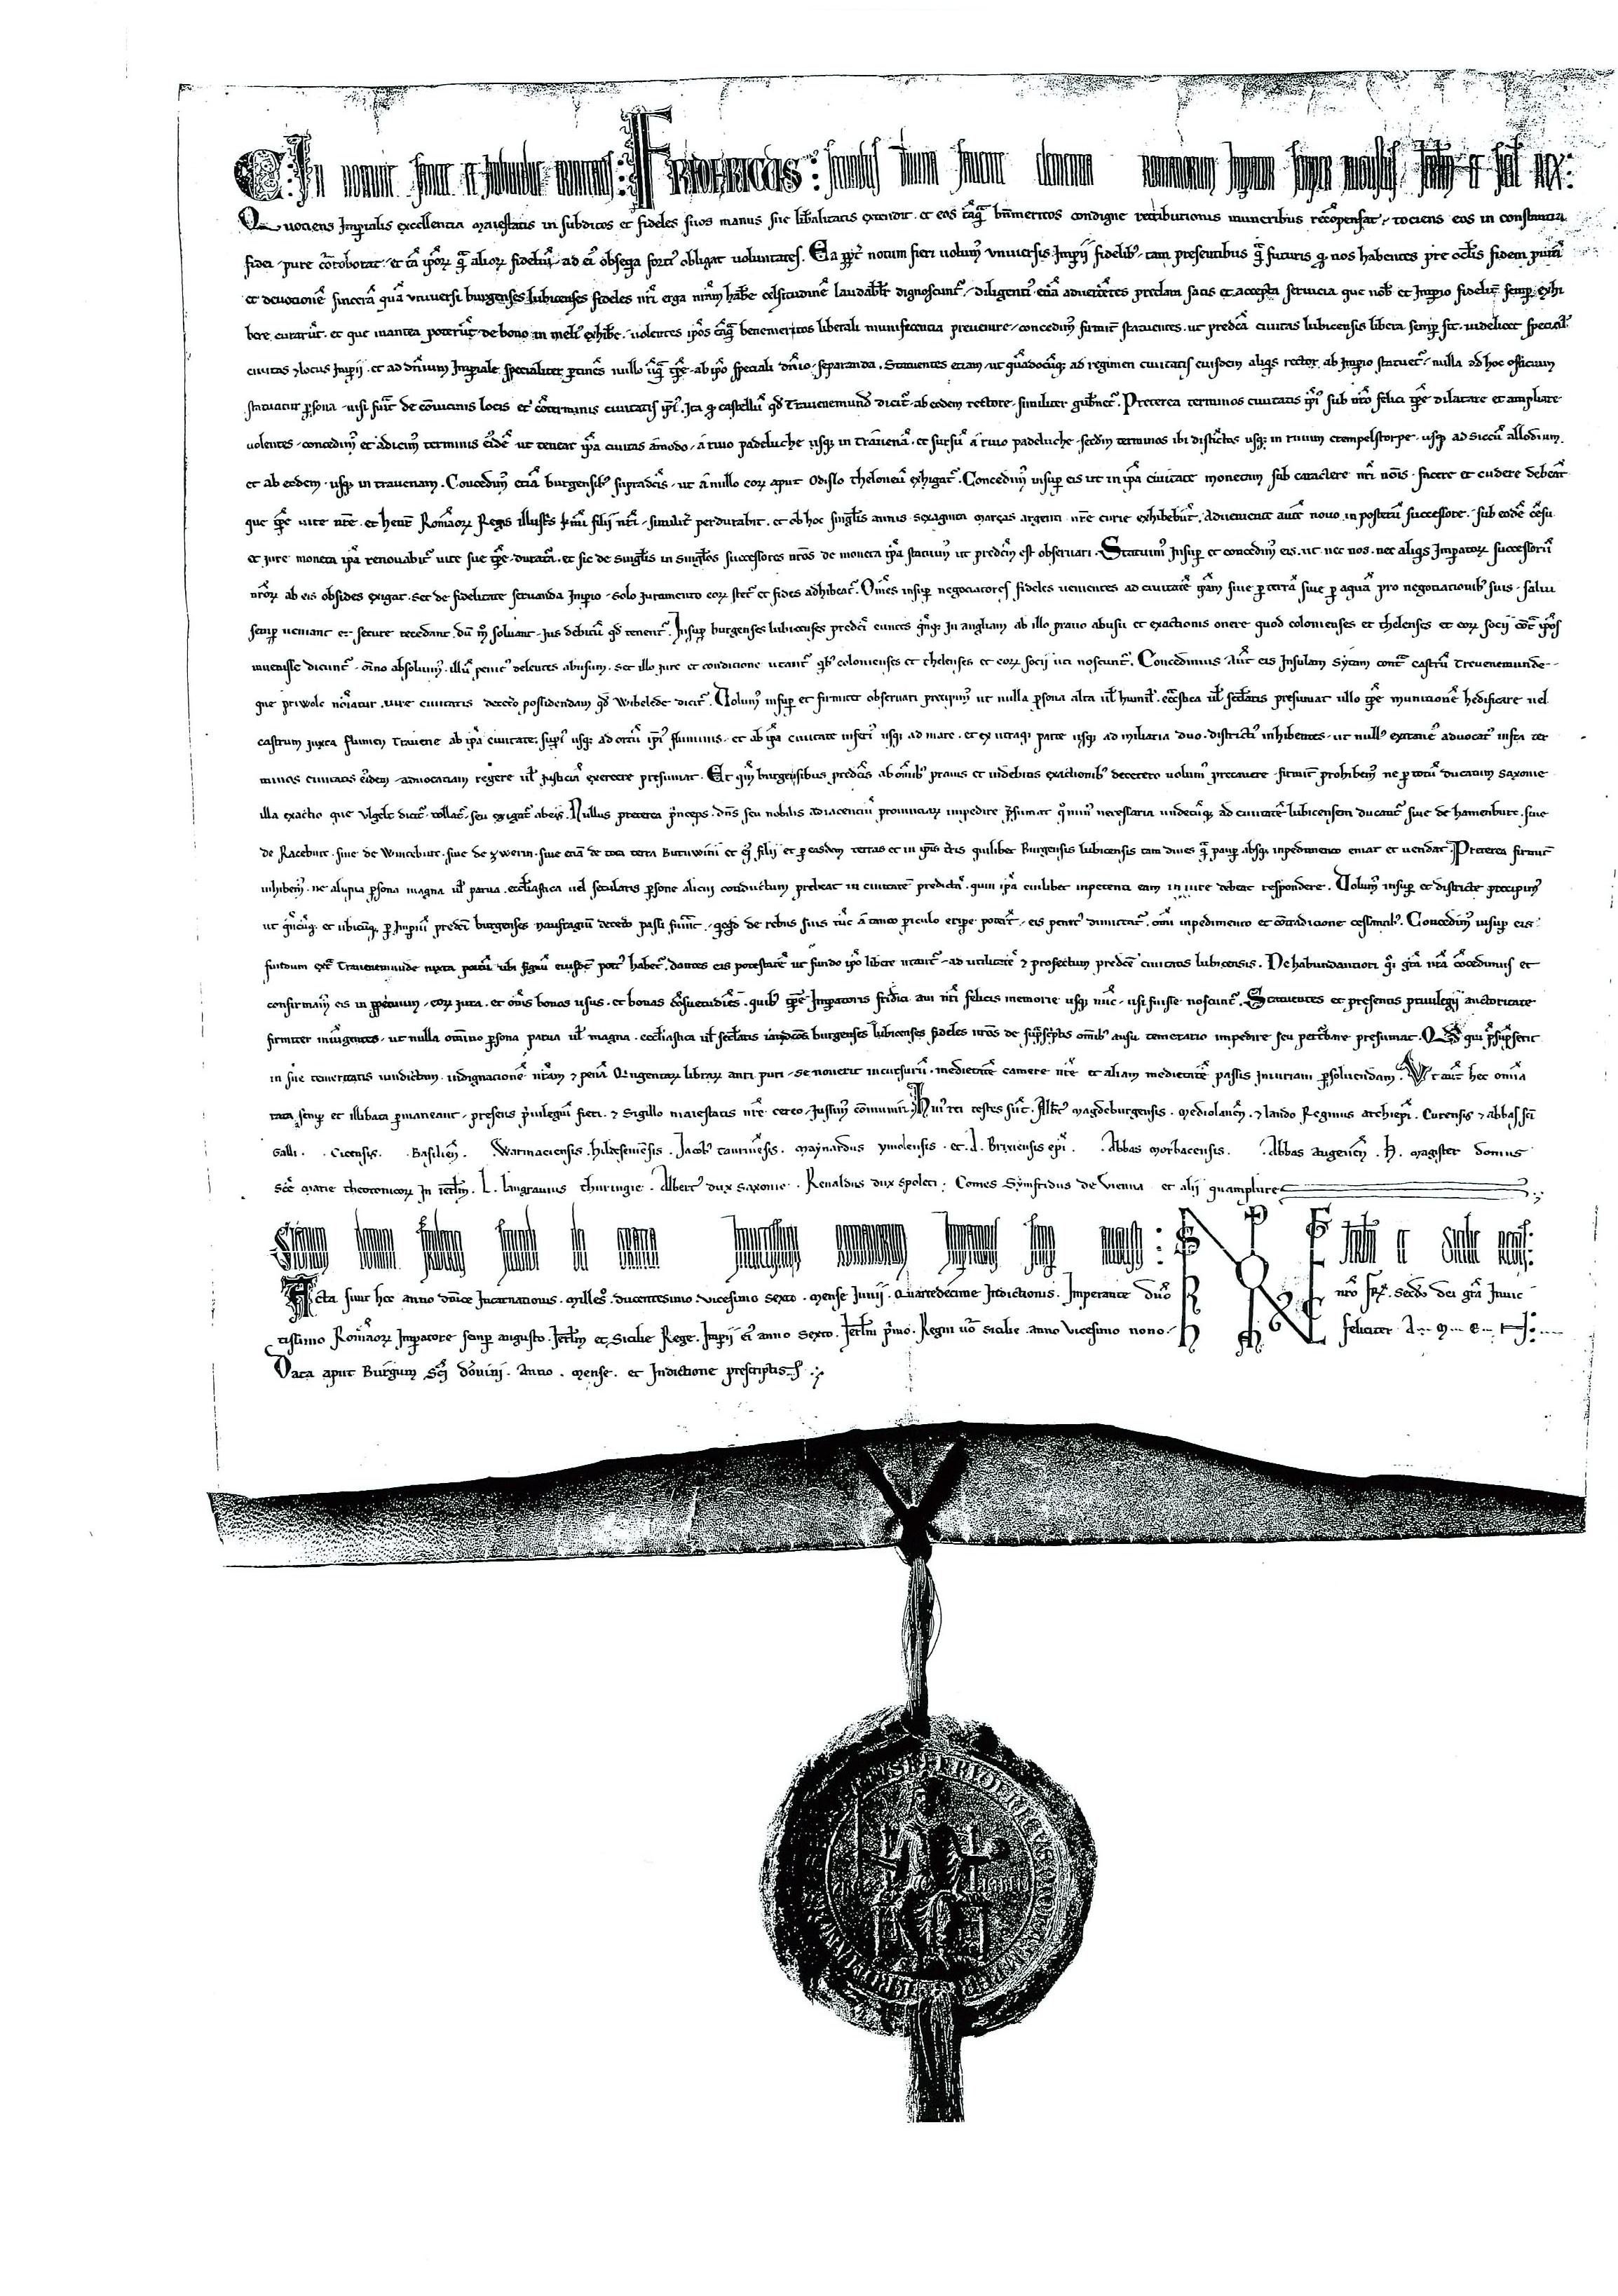 In nomine sancte et indiuidue trinitatis : Fridericus : secundus diuina fauente clementia romanorum Imperator semper augustus. Ierlm et Sicił rex :
Quociens Imperialis excellencia maiestatis in subditos et fideles suos manus sue liƀalitatis extendit. et eos tāq̄ bn̄meritos condigne retributionis muneribus recōpensat, tociens eos in constantia
fidei pure cōroborat. et tā ip̄oꝝ q̄ alioꝝ fideliū ad eiꝰ obseq̄a forciꝰ obligat uoluntates. Ea ꝓpt̄ notum fieri uolumꝰ vniuersis Imꝑii fidelibꝰ tam presentibus q̄ futuris ꝙ nos habentes pre oc̄lis fidem purā
et deuocionē sincerā quā vniuersi burgenses lubicenses fideles nr̄i erga nrām habēt celsitudinē laudabilit̄ dignoscunt᷑, diligenciꝰ eciā aduertētes preclara satis et accepta seruicia que noƀ et Imꝑio fidelit̄ semꝑ exhi
bere curarūt. et que inantea poterūt de bono in meliꝰ exhibēr. uolentes ip̄os tāq̄ benemeritos liberali munificencia preuenire, concedimꝰ firmit̄ statuentes. ut predc̄a ciuitas lubicensis libera semꝑ sit. uidelicet specialꝰ
ciuitas ⁊ locus Imꝑii. et ad dn̄ium Imꝑiale specialiter ꝑtinēs nullo ūq̄ tꝑe ab ip̄o speciali dn̄io separanda. Statuentes eciam ut qn̄docūq; ad regimen ciuitatis eiusdem aliqs rector ab Imꝑio statuet᷑, nulla ad hoc officium
statuatur ꝑsona nisi fuīt de cōuicinis locis et cōterminis ciuitatis ip̄i. Ita ꝙ castellū qd̄ Trauenemunđ dicit᷑ ab eodem rectore similiter guƀnet᷑. Preterea terminos ciuitatis ip̄iꝰ sub nr̄o felici tꝑe dilatare et ampliare
uolentes concedimꝰ et adicimꝰ terminis eiꝰdē ut teneat ip̄a ciuitas amodo a riuo padeluche usq; in trauenā. et sursū a riuo padeluche secdm̄ terminos ibi distīctos usq; in riuum crempelstorpe usq; ad siccū allodium.
et ab eodem usq; in trauenam. Concedimꝰ eciā burgensibꝰ supradcīs ut a nullo eoꝝ aput Odislo theloneū exigat᷑. Concedimꝰ insuꝑ eis ut in ip̄a ciuitate monetam sub caractere nr̄i nōis facere et cudere debeāt
que tꝑe uite nr̄e. et henr̄ Romanoꝝ Regis illustris kmi filii nr̄i similit̄ perdurabit. et oƀ hoc singl̄is annis sexaginta marcas argenti nr̄e curie exhibebūt. Adueniente aut̄ nouo in posterū successore. sub eodē cēsu
et iure moneta ip̄a renouabit᷑ uite sue tꝑe duratā. et sic de singl̄is in singl̄os successores nr̄os de moneta ip̄a statuimꝰ ut predcm̄ est obseruari. Statuimꝰ Insuꝑ et concedimꝰ eis. ut nec nos. nec aliqs Imꝑatoꝝ successoꝝ
nr̄oꝝ ab eis obsides exigat. set de fidelitate seruanda Imꝑio solo iuramento eoꝝ stet᷑ et fides adhibeat᷑. Om̄es insuꝑ negociatores fideles uenientes ad ciuitatē ip̄am siue ꝑ terrā siue ꝑ aquā pro negociationibꝰ suis salui
semꝑ ueniant et secure recedant. dū m̄ soluant ius debitū qđ tenent᷑. Insuꝑ burgenses lubicenses predcī euntes qn̄q; in angliam ab illo prauo abusu et exactionis onere quod colonienses et thelenses et eoꝝ socii cōt̄ ip̄os
inuenisse dicunt᷑. oīno absoluimꝰ. illū penitꝰ delentes abusum. set illo iure et condicione utant᷑ qƀꝰ colonienses et thelenses et eoꝝ socii uti noscunt᷑. Concedimus aūt eis Insulam sitam cont̄ castrū Treuenemunde
que priwolc noīatur iure ciuitatis decet̄o possidendam qđ wibelede dicit᷑. Uolumꝰ insuꝑ et firmiter obseruari precipimꝰ ut nulla ꝑsona alta ul̄ humil̄. ecc̄stica ul̄ secl̄aris presumat ullo tꝑe municionē hedificare uel
castrum iuxta flumen Trauene ab ip̄a ciuitate supiꝰ usq; ad ortū ip̄iꝰ fluminis. et ab ip̄a ciuitate inferiꝰ usq; ad mare. et ex utraq; parte usq; ad miliaria duo. districtiꝰ inhibentes ut nullꝰ extraneꝰ aduocatꝰ infra ter
minos ciuitatis eiꝰdem aduocatiam regere ul̄ iusticiā exercere presumat. Et qm̄ burgensibus predcīs ab om̄ibꝰ prauis et indebitis exactionibꝰ decetero uolumꝰ precauere firmit̄ prohibemꝰ ne ꝑ totū ducatum saxonie
illa exactio que ulgēlt dicit᷑ tollat᷑ seu exigat᷑ ab eis. Nullus preterea p̄nceps. dn̄s seu nobilis adiacenciū prouinciaꝝ impedire p̄sumat qminꝰ necessaria undecūq; ad ciuitatē lubicensem ducant᷑ siue de hamenburc. siue
de Raceburc. siue de Wittebure. siue de zwerin. siue eciā de tota terra Buruwini et eiꝰ filii et ꝑ easdem terras et in ip̄is t̄ris quilibet Burgensis lubicensis tam diues q̄ pauꝑ absq; inpedimento emat et uendat. Preterea firmit̄
inhibemꝰ. ne aliqua ꝑsona magna ul̄ parua. eccl̄iastica uel secularis ꝑsone alicui conductum prebeat in ciuitate predictā. quin ip̄a cuilibet inpetenti eam in iure debeat respondere. Uolumꝰ insuꝑ et districte precipimꝰ
ut qn̄cūq; et ubicūq; ꝑ Imꝑiū predcī burgenses naufragiū decet̄o passi fuīnt. qcqđ de rebus suis tūc a tanto piculo eripe poterīt eis penitꝰ dimittat᷑. om̄i inpedimento et cōtradicione cessantibꝰ. Concedimꝰ insuꝑ eis
fundum ext̄ Trauenemunde iuxta portū ubi signū eiusdē portꝰ habet᷑. dantes eis potestatē ut fundo ip̄o libere utant᷑ ad utilitatē ⁊ profectum predcē ciuitatis lubicensis. De habundanciori qi gr̄a nr̄a cōcedimus et
confirmamꝰ eis in ꝑpetuum eoꝝ iura. et om̄s bonos usus. et bonas cōsuetudies. quibꝰ tꝑe Imꝑatoris fridici aui nr̄i felicis memorie usq; nūc usi fuisse noscunt᷑. Statuentes et presentis priuilegii auctoritate
firmiter iniungentes. ut nulla om̄ino ꝑsona parua ul̄ magna. eccl̄iastica ul̄ secl̄aris iamdcōs burgenses lubicenses fideles nr̄os de sup̄sc̄ptis om̄ibꝰ ausu temerario impedire seu pertƀare presumat. Qđ qui p̄sūpserit
in sue temeritatis uindictam. indignacionē nr̄am ⁊ penā Qingentaꝝ libraꝝ auri puri se nouerit incursurū. medietatē camere nr̄e et aliam medietatē passis iniuriam ꝑsoluendam. Ut aūt hec om̄ia
rata semꝑ et illibata ꝑmaneant. presens p̄uilegiū fieri. ⁊ sigillo maiestatis nr̄e cereo Iussimꝰ cōmuniri. Huiꝰ rei testes sūt. Albtꝰ magdeburgensis. mediolanēn. ⁊ lando Reginus archiepī. Curensis ⁊ abbas sci
Galli. . Cicensis. . Basiliēn. . Warmaciensis. Hildesemēsis. Jacobꝰ taurinēsis. maynardus ymolensis. et. A. Brixiensis epī. . Abbas morbacensis. . Abbas augenēn. H. magister domus
Scē marie theotonicoꝝ in ierlm̄. L. langrauius thuringie. Albertꝰ dux saxonie. Renaldus dux spoleti. Comes Symfridus de vienna et alii quamplures
Signum domini friderici secundi dei gratia Inuictissimi romanorum Imperatoris semper augusti : Ierusalem et Sicilie regis :
Acta sunt hec anno dn̄ice Incarnationis. milleso. ducentesimo. vicesimo sexto. mense Iunii. Quartedecime Indictionis. Imperante dn̄o nr̄o frid. Secđo dei grā Inuic
tissimo Romanoꝝ Imperatore semper augusto. Ierlm̄ et Sicilie Rege. Imꝑii eiꝰ anno sexto. Ierlm̄ p̄mo. Regni uo Sicilie anno vicesimo nono. feliciter A... M... E... N...
Data aput Burgum Sci dōnini. anno. mense. et Indictione prescriptis.